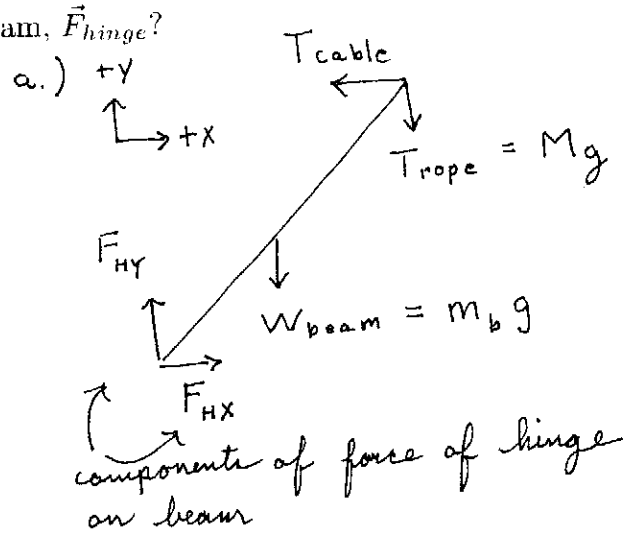 am, F⃗hinge?
a.) +Y
+X
Tcable
Trope = Mg
FHY
Wbeam = mbg
FHX
components of force of hinge
on beam